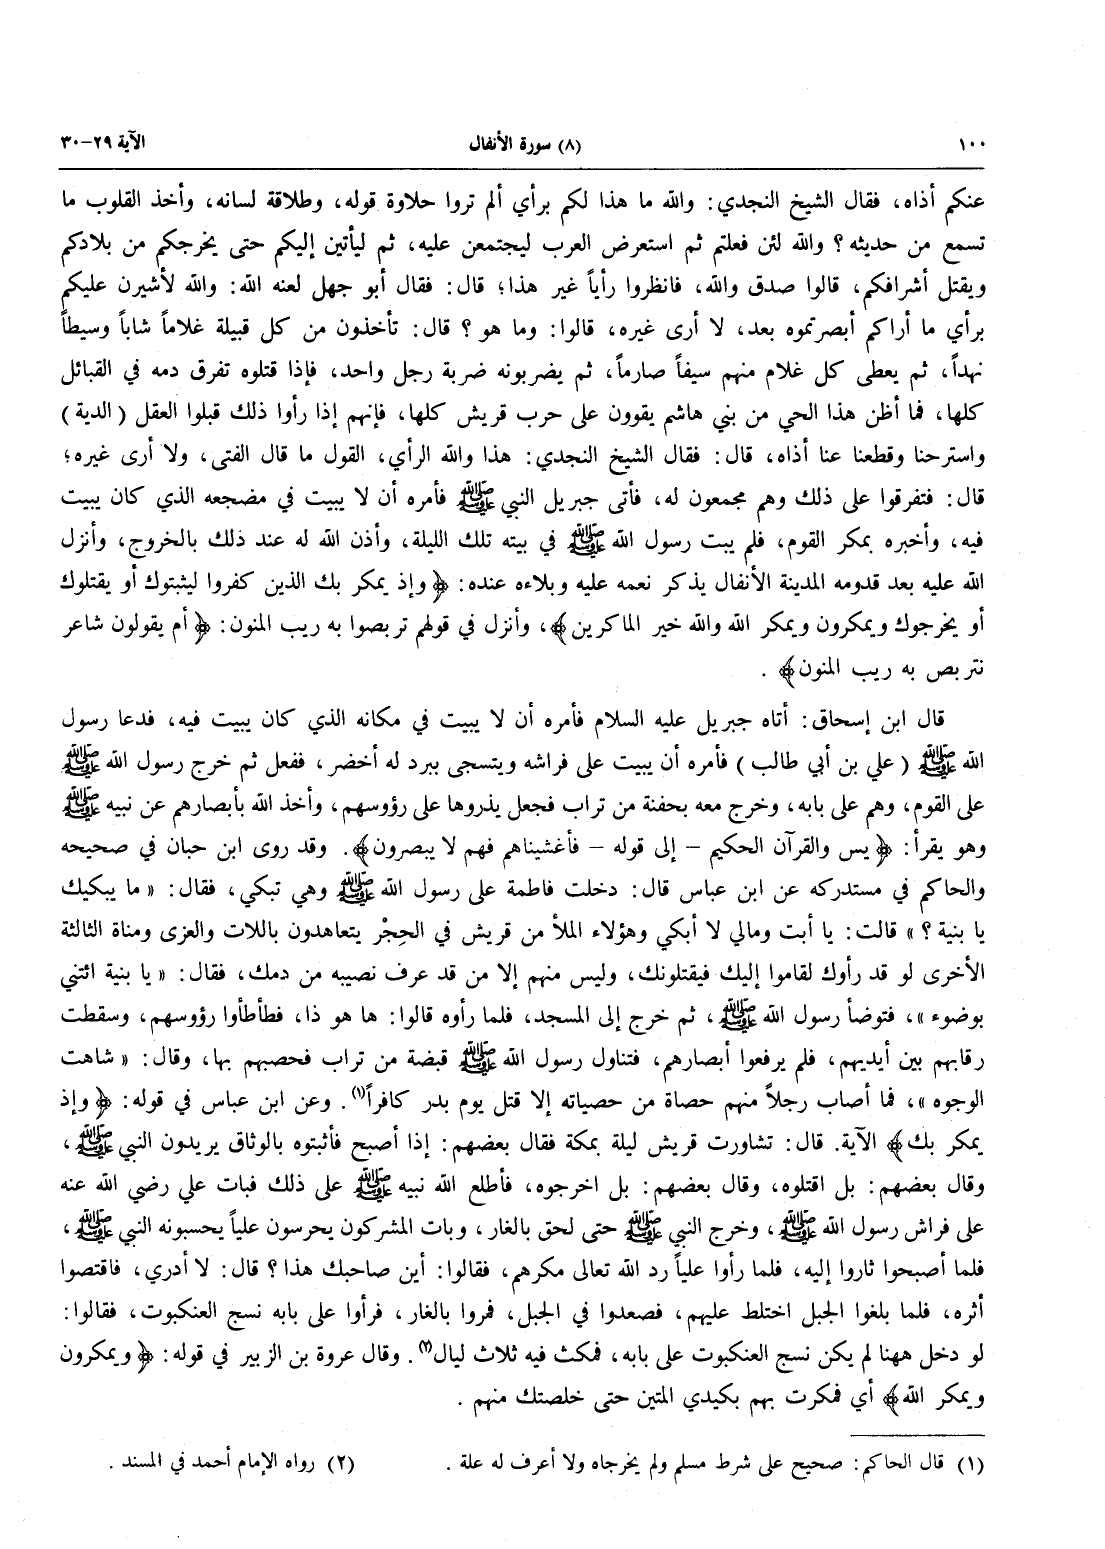 ١٠٠ (٨) سورة الأنفال الآية ٢٩-٣٠
عنكم أذاه، فقال الشيخ النجدي: والله ما هذا لكم برأي ألم تروا حلاوة قوله، وطلاقة لسانه، وأخذ القلوب ما
تسمع من حديثه؟ والله لئن فعلتم ثم استعرض العرب ليجتمعن عليه، ثم ليأتين إليكم حتى يخرجكم من بلادكم
ويقتل أشرافكم، قالوا صدق والله، فانظروا رأياً غير هذا؛ قال: فقال أبو جهل لعنه الله: والله لأشيرن عليكم
برأي ما أراكم أبصرتموه بعد، لا أرى غيره، قالوا: وما هو؟ قال: تأخذون من كل قبيلة غلاماً شاباً وسيطاً
نهداً، ثم يعطى كل غلام منهم سيفاً صارماً، ثم يضربونه ضربة رجل واحد، فإذا قتلوه تفرق دمه في القبائل
كلها، فما أظن هذا الحي من بني هاشم يقوون على حرب قريش كلها، فإنهم إذا رأوا ذلك قبلوا العقل (الدية)
واسترحنا وقطعنا عنا أذاه، قال: فقال الشيخ النجدي: هذا والله الرأي، القول ما قال الفتى، ولا أرى غيره؛
قال: فتفرقوا على ذلك وهم مجمعون له، فأتى جبريل النبي ﷺ فأمره أن لا يبيت في مضجعه الذي كان يبيت
فيه، وأخبره بمكر القوم، فلم يبت رسول الله ﷺ في بيته تلك الليلة، وأذن الله له عند ذلك بالخروج، وأنزل
الله عليه بعد قدومه المدينة الأنفال يذكر نعمه عليه وبلاءه عنده: ﴿وإذ يمكر بك الذين كفروا ليثبتوك أو يقتلوك
أو يخرجوك ويمكرون ويمكر الله والله خير الماكرين﴾، وأنزل في قولهم تربصوا به ريب المنون: ﴿أم يقولون شاعر
نتربص به ريب المنون﴾.
قال ابن إسحاق: أتاه جبريل عليه السلام فأمره أن لا يبيت في مكانه الذي كان يبيت فيه، فدعا رسول
الله ﷺ (علي بن أبي طالب) فأمره أن يبيت على فراشه ويتسجى ببرد له أخضر، ففعل ثم خرج رسول الله ﷺ
على القوم، وهم على بابه، وخرج معه بحفنة من تراب فجعل يذروها على رؤوسهم، وأخذ الله بأبصارهم عن نبيه ﷺ
وهو يقرأ: ﴿يس والقرآن الحكيم - إلى قوله - فأغشيناهم فهم لا يبصرون﴾. وقد روى ابن حبان في صحيحه
والحاكم في مستدركه عن ابن عباس قال: دخلت فاطمة على رسول الله ﷺ وهي تبكي، فقال: «ما يبكيك
يا بنية؟» قالت: يا أبت ومالي لا أبكي وهؤلاء الملأ من قريش في الحِجْر يتعاهدون باللات والعزى ومناة الثالثة
الأخرى لو قد رأوك لقاموا إليك فيقتلونك، وليس منهم إلا من قد عرف نصيبه من دمك، فقال: «يا بنية ائتني
بوضوء»، فتوضأ رسول الله ﷺ، ثم خرج إلى المسجد، فلما رأوه قالوا: ها هو ذا، فطأطأوا رؤوسهم، وسقطت
رقابهم بين أيديهم، فلم يرفعوا أبصارهم، فتناول رسول الله ﷺ قبضة من تراب فحصبهم بها، وقال: «شاهت
الوجوه»، فما أصاب رجلاً منهم حصاة من حصياته إلا قتل يوم بدر كافراً(١). وعن ابن عباس في قوله: ﴿وإذ
يمكر بك﴾ الآية. قال: تشاورت قريش ليلة بمكة فقال بعضهم: إذا أصبح فأثبتوه بالوثاق يريدون النبي ﷺ،
وقال بعضهم: بل اقتلوه، وقال بعضهم: بل اخرجوه، فأطلع الله نبيه ﷺ على ذلك فبات علي رضي الله عنه
على فراش رسول الله ﷺ، وخرج النبي ﷺ حتى لحق بالغار، وبات المشركون يحرسون علياً يحسبونه النبي ﷺ،
فلما أصبحوا ثاروا إليه، فلما رأوا علياً رد الله تعالى مكرهم، فقالوا: أين صاحبك هذا؟ قال: لا أدري، فاقتصوا
أثره، فلما بلغوا الجبل اختلط عليهم، فصعدوا في الجبل، فمروا بالغار، فرأوا على بابه نسج العنكبوت، فقالوا:
لو دخل ههنا لم يكن نسج العنكبوت على بابه، فمكث فيه ثلاث ليال(٢). وقال عروة بن الزبير في قوله: ﴿ويمكرون
ويمكر الله﴾ أي فمكرت بهم بكيدي المتين حتى خلصتك منهم.
(١) قال الحاكم: صحيح على شرط مسلم ولم يخرجاه ولا أعرف له علة. (٢) رواه الإمام أحمد في المسند.